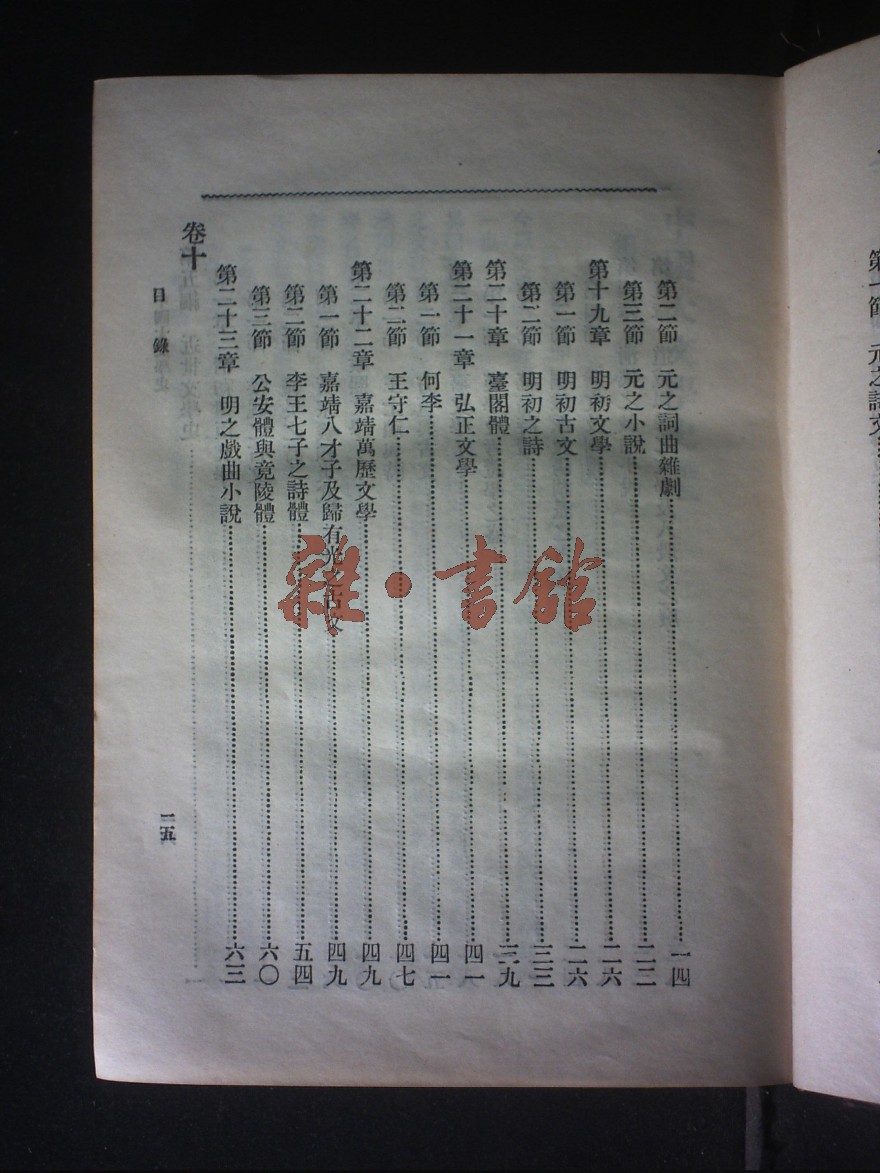 第二節 元之詞曲雜劇 一四
第三節 元之小說 二二
第十九章 明初文學 二六
第一節 明初古文 二六
第二節 明初之詩 三三
第二十章 臺閣體 三九
第二十一章 弘正文學 四一
第一節 何李 四一
第二節 王守仁 四七
第二十二章 嘉靖萬歷文學 四九
第一節 嘉靖八才子及歸有光之古文 四九
第二節 李王七子之詩體 五四
第三節 公安體與竟陵體 六〇
第二十三章 明之戲曲小說 六三
卷十
目錄
一五
雜·書館
第一節 元之詩文